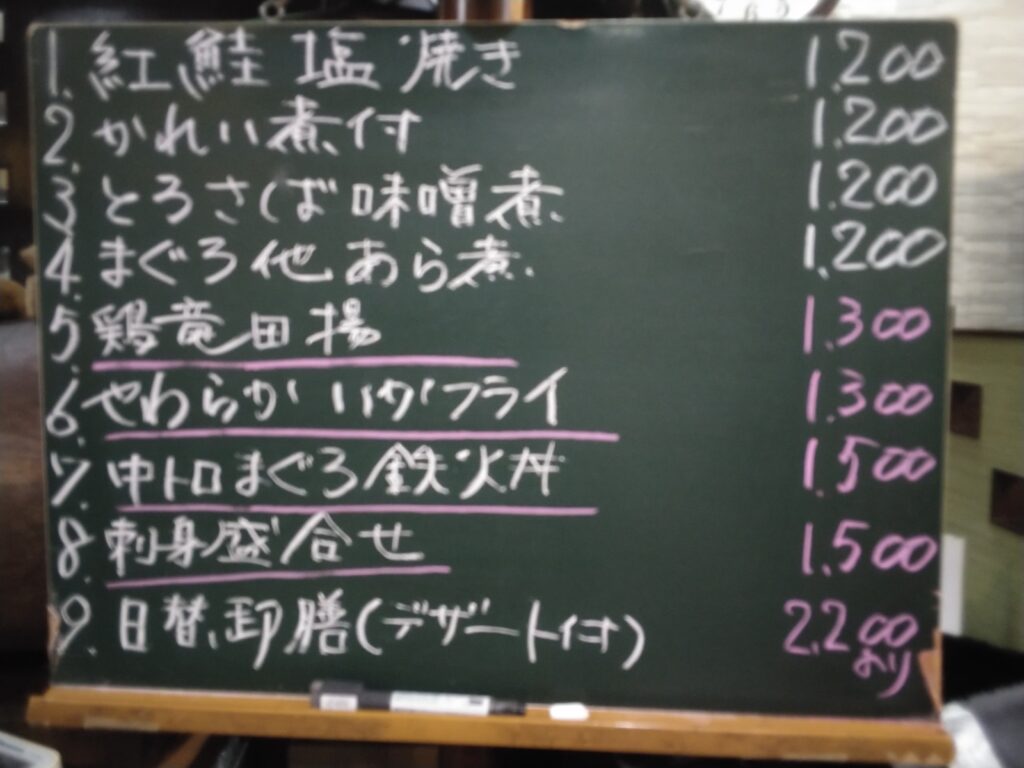 1. 紅鮭塩焼き 1.200
2. かれい煮付 1.200
3. とろさば味噌煮 1.200
4. まぐろ他あら煮. 1.200
5. 鶏竜田揚 1.300
6. やわらかいかフライ 1.300
7. 中トロまぐろ鉄火丼 1.500
8. 刺身盛合せ 1.500
9. 日替御膳(デザート付) 2.200
より